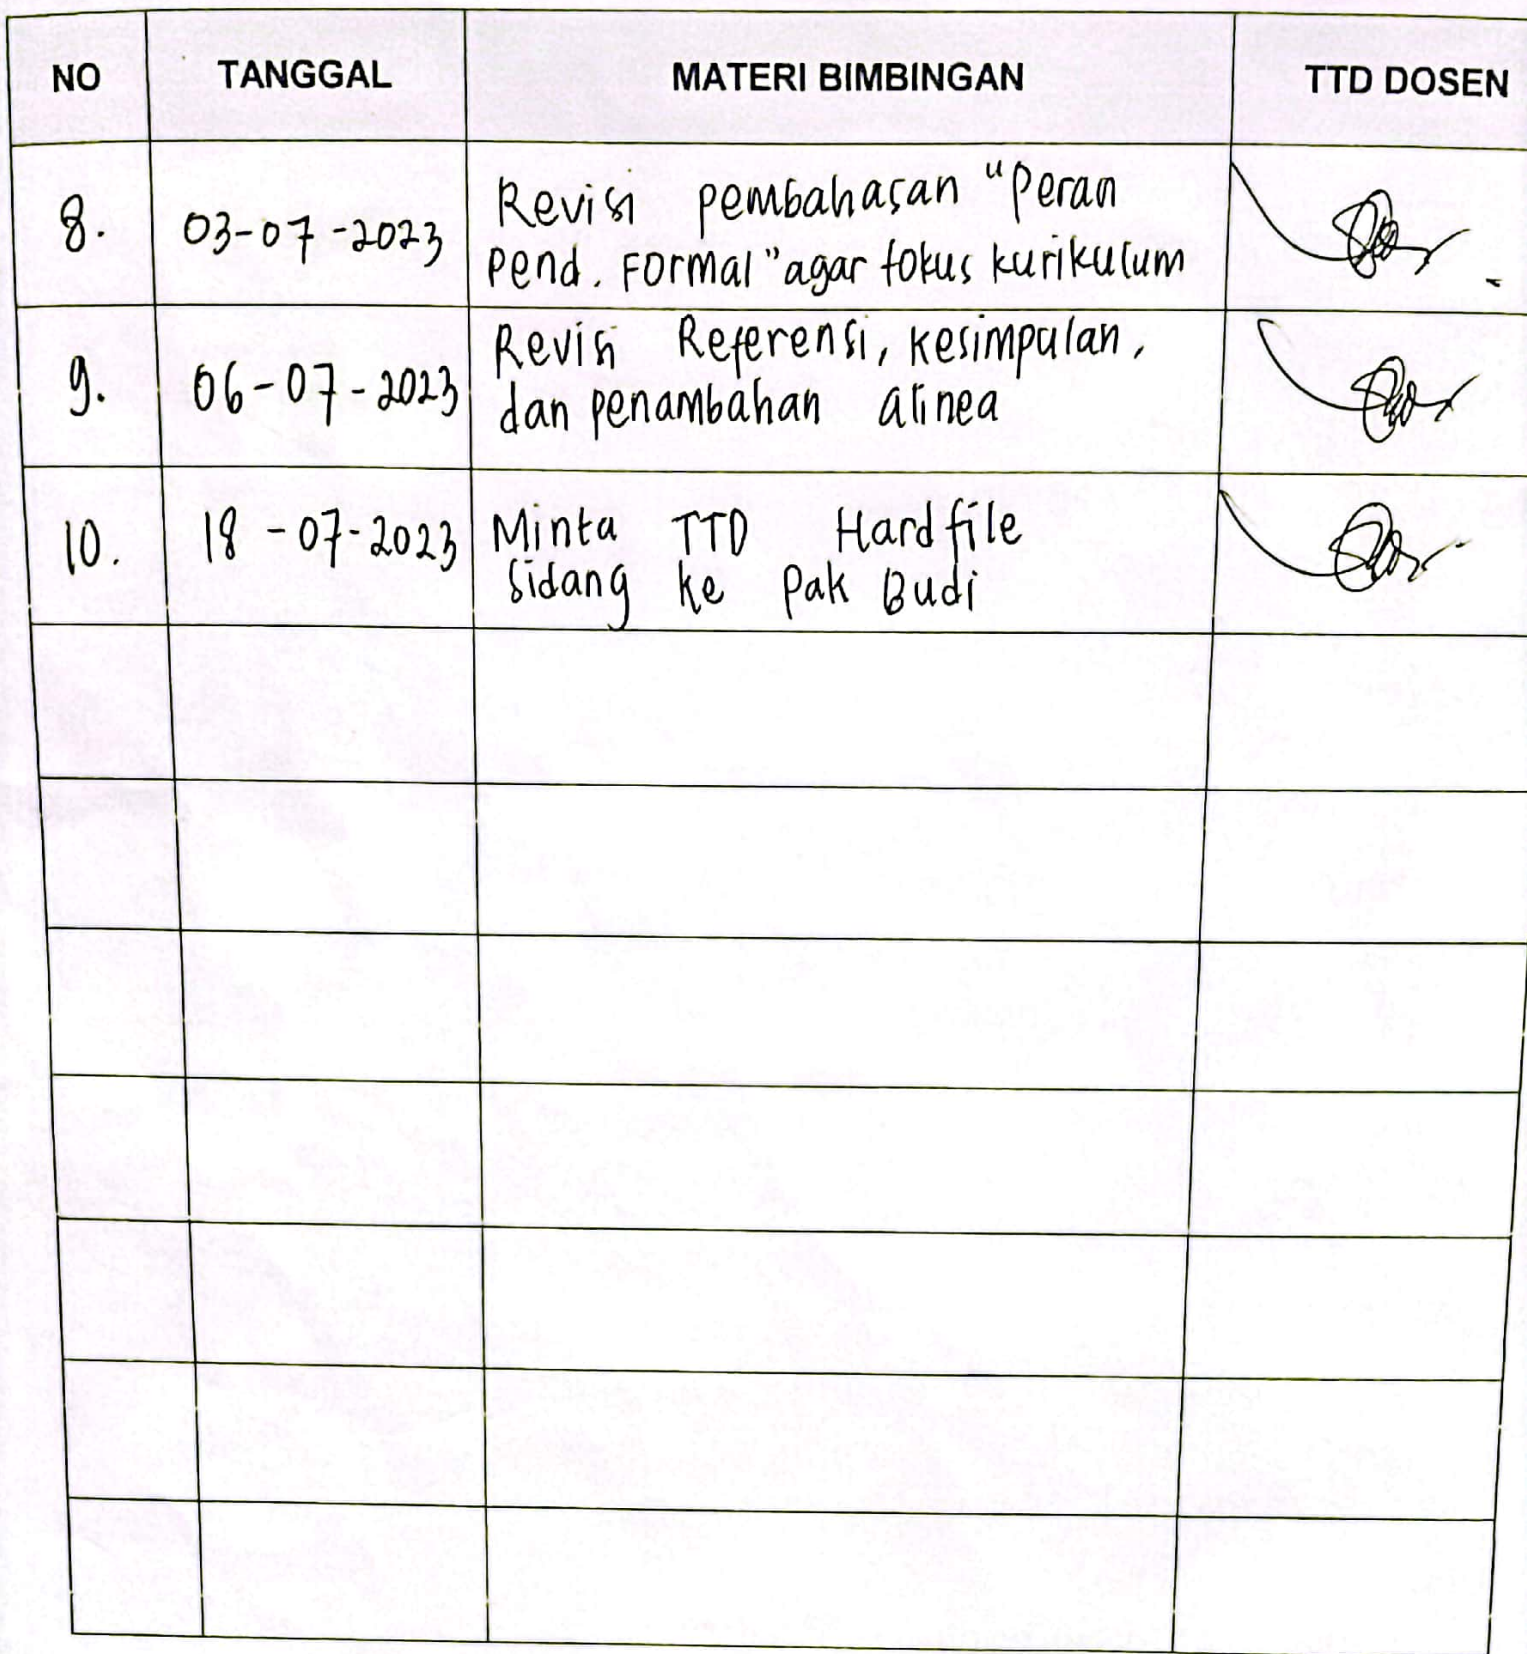 NO TANGGAL MATERI BIMBINGAN TTD DOSEN
8. 03-07-2023 Revisi pembahasan "Peran
Pend. Formal" agar fokus kurikulum
9. 06-07-2023 Revisi Referensi, kesimpulan,
dan penambahan alinea
10. 18-07-2023 Minta TTD Hardfile
Sidang ke Pak Budi